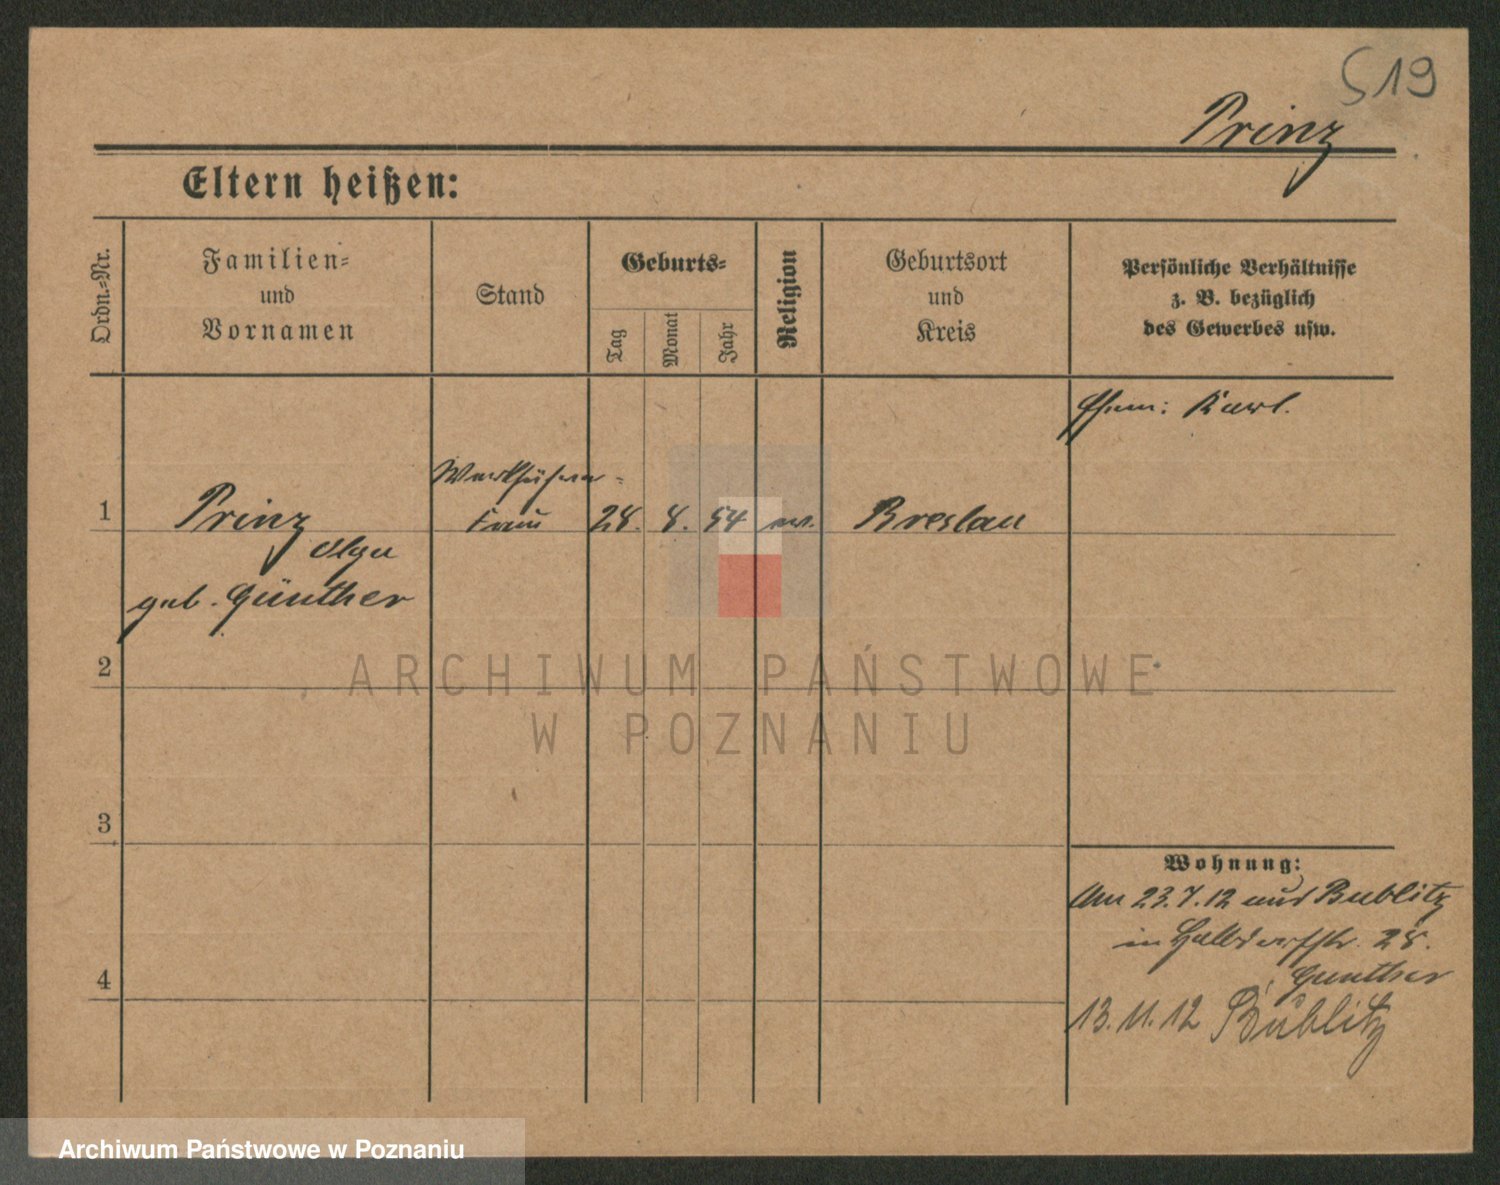 519
Prinz
Eltern heißen:
Ordn.-Nr.
Familien-
und
Vornamen
Stand
Geburts-
Tag
Monat
Jahr
Religion
Geburtsort
und
Kreis
Persönliche Verhältnisse
z. B. bezüglich
des Gewerbes usw.
Ehem: Karl.
Werkführer-
1 Prinz Frau 28. 8. 54 ev. Breslau
Olga
geb. Günther
2
ARCHIWUM PAŃSTWOWE
W POZNANIU
3
Wohnung:
Am 23.7.12 aus Bublitz
in 28.
Gunther
4
13.11.12 Bublitz
Archiwum Państwowe w Poznaniu